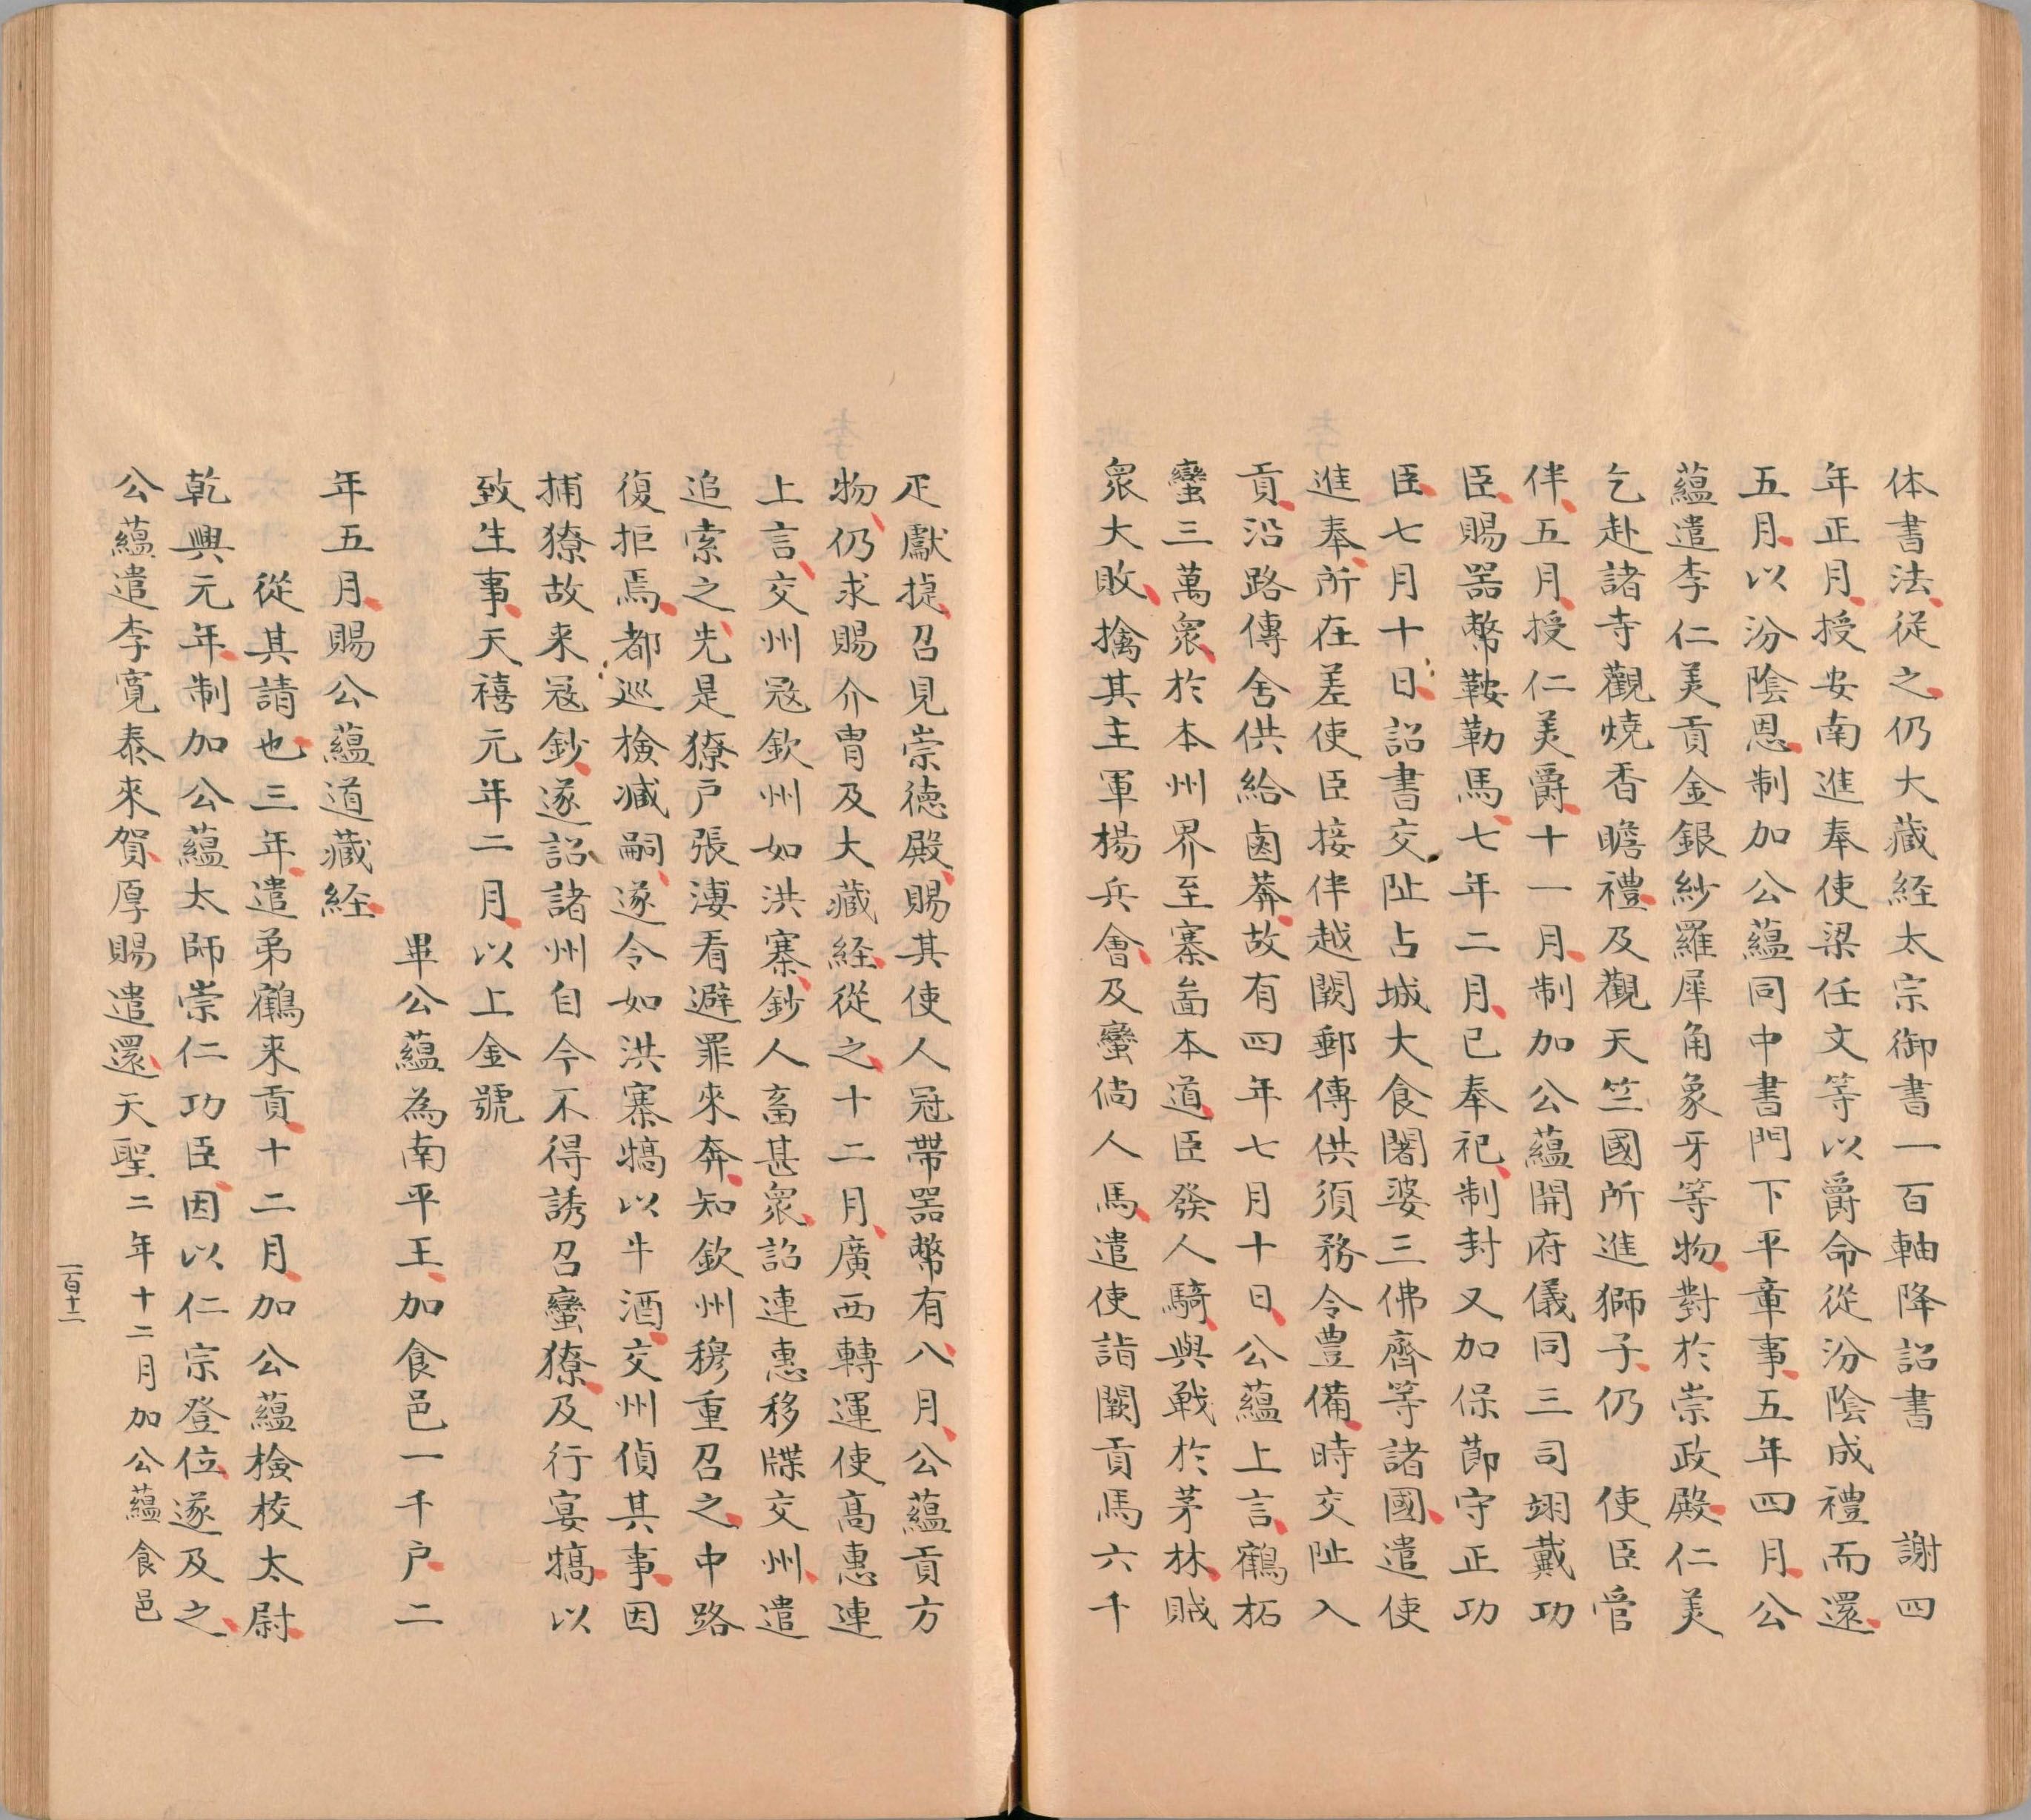 体書法従之仍大藏経太宗御書一百軸降詔書　謝四
年正月授安南進奉使梁任文等以爵命從汾陰成禮而還
五月以汾陰恩制加公蘊同中書門下平章事五年四月公
蘊遣李仁美貢金銀紗羅犀角象牙等物對於崇政殿仁美
乞赴諸寺觀燒香瞻禮及觀天竺國所進獅子仍　使臣管
伴五月授仁美爵十一月制加公蘊開府儀同三司翊戴功
臣賜器幣鞍勒馬七年二月已奉祀制封又加保節守正功
臣七月十日詔書交阯占城大食闍婆三佛齊等諸國遣使
進奉所在差使臣接伴越闕郵傳供須務令豊備時交阯入
貢沿路傳舍供給鹵莽故有四年七月十日公蘊上言鶴柘
蠻三萬衆於本州界至寨啚本道臣發人騎與戰於茅林賊
衆大敗擒其主軍楊兵會及蠻倘人馬遣使詣闕貢馬六千
疋獻捷召見崇德殿賜其使人冠帶器幣有八月公蘊貢方
物仍求賜介冑及大藏経從之十二月廣西轉運使高惠連
上言交州冦欽州如洪寨鈔人畜甚衆詔連惠移牒交州遣
追索之先是獠户張淒看避罪來奔知欽州穆重召之中路
復拒焉都巡撿臧嗣遂令如洪寨犒以牛酒交州偵其事因
捕獠故来冦鈔遂詔諸州自今不得誘召蠻獠及行宴犒以
致生事天禧元年二月以上金號
畢公蘊為南平王加食邑一千户二
年五月賜公蘊道藏経
從其請也三年遣弟鶴来貢十二月加公蘊檢校太尉
乾興元年制加公蘊太師崇仁功臣因以仁宗登位遂及之
公蘊遣李寛泰來賀厚賜遣還天聖二年十二月加公蘊食邑
一百十二